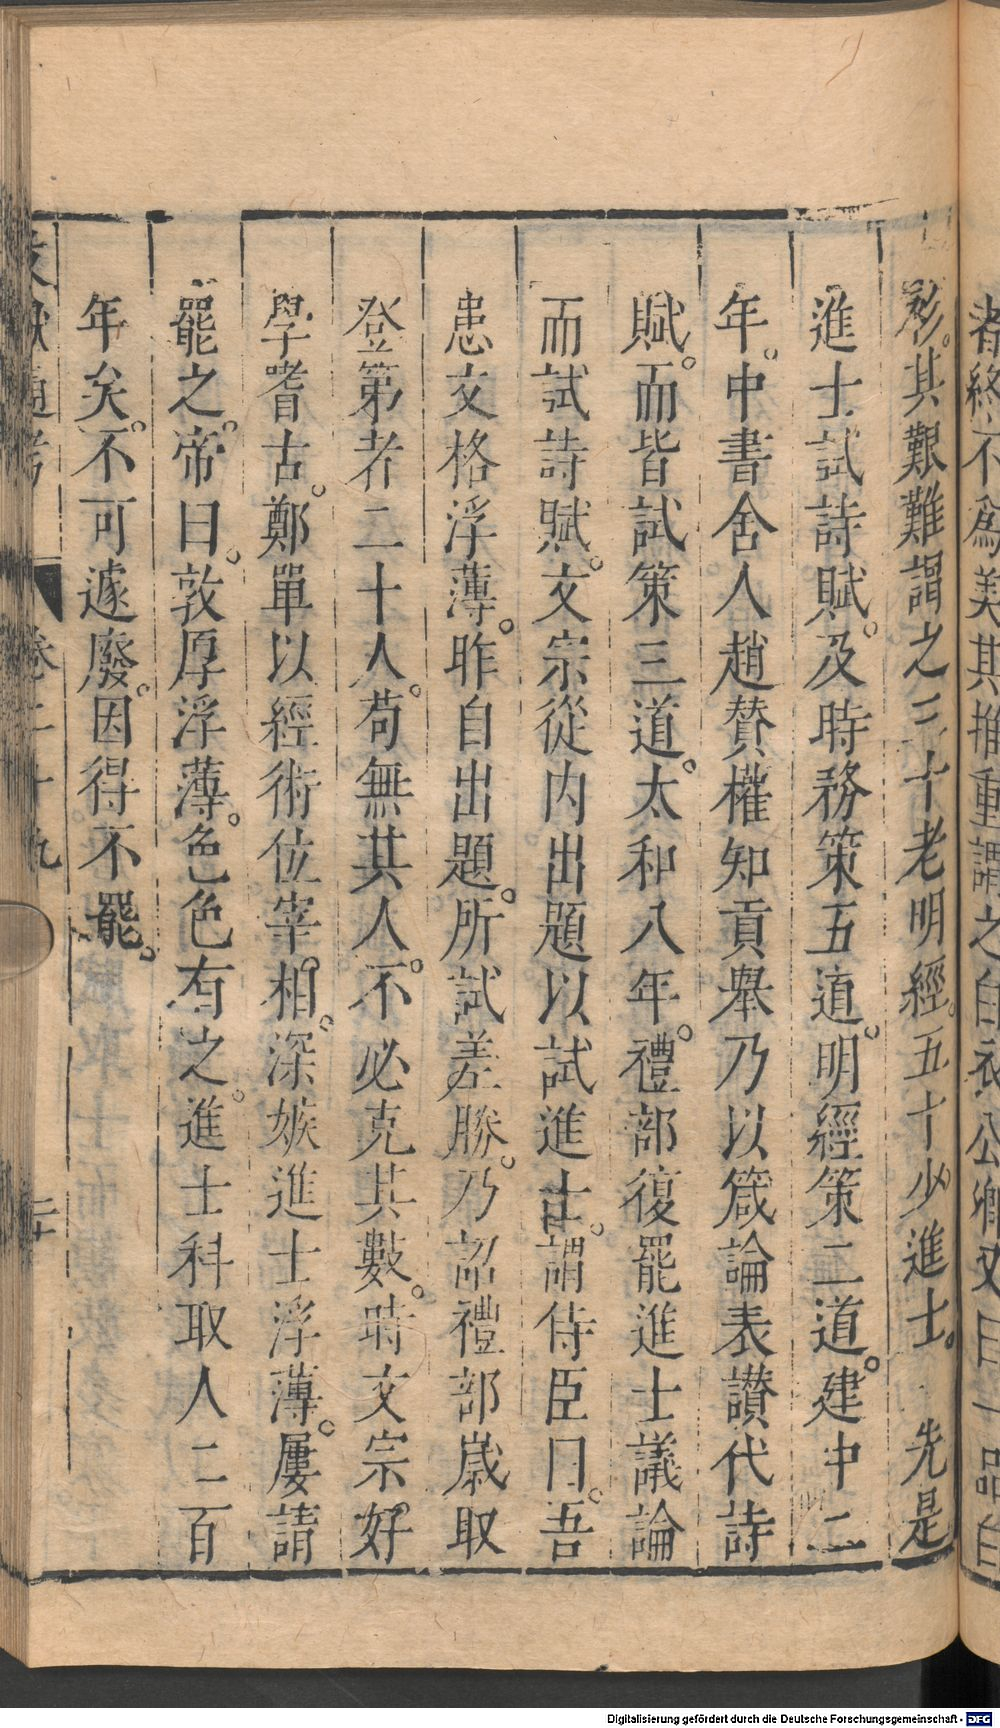 者終不爲美其推重謂之白衣公卿又曰一品白
衫。其艱難謂之三十老明經。五十少進士。 先是
進士試詩賦。及時務策五道。明經策二道。建中二
年。中書舍人趙贊權知貢舉乃以箴論表讃代詩
賦。而皆試策三道。太和八年。禮部復罷進士議論
而試詩賦。文宗從内出題以試進士。謂侍臣曰。吾
患文格浮薄。昨自出題。所試差勝。乃詔禮部嵗取
登第者二十人。苟無其人。不必充其數。時文宗好
學嗜古。鄭覃以經術位宰相。深嫉進士浮薄。屢請
罷之。帝曰。敦厚浮薄。色色有之。進士科取人二百
年矣。不可遽廢。因得不罷。
文獻通考 卷二十九
Digitalisierung gefördert durch die Deutsche Forschungsgemeinschaft - DFG